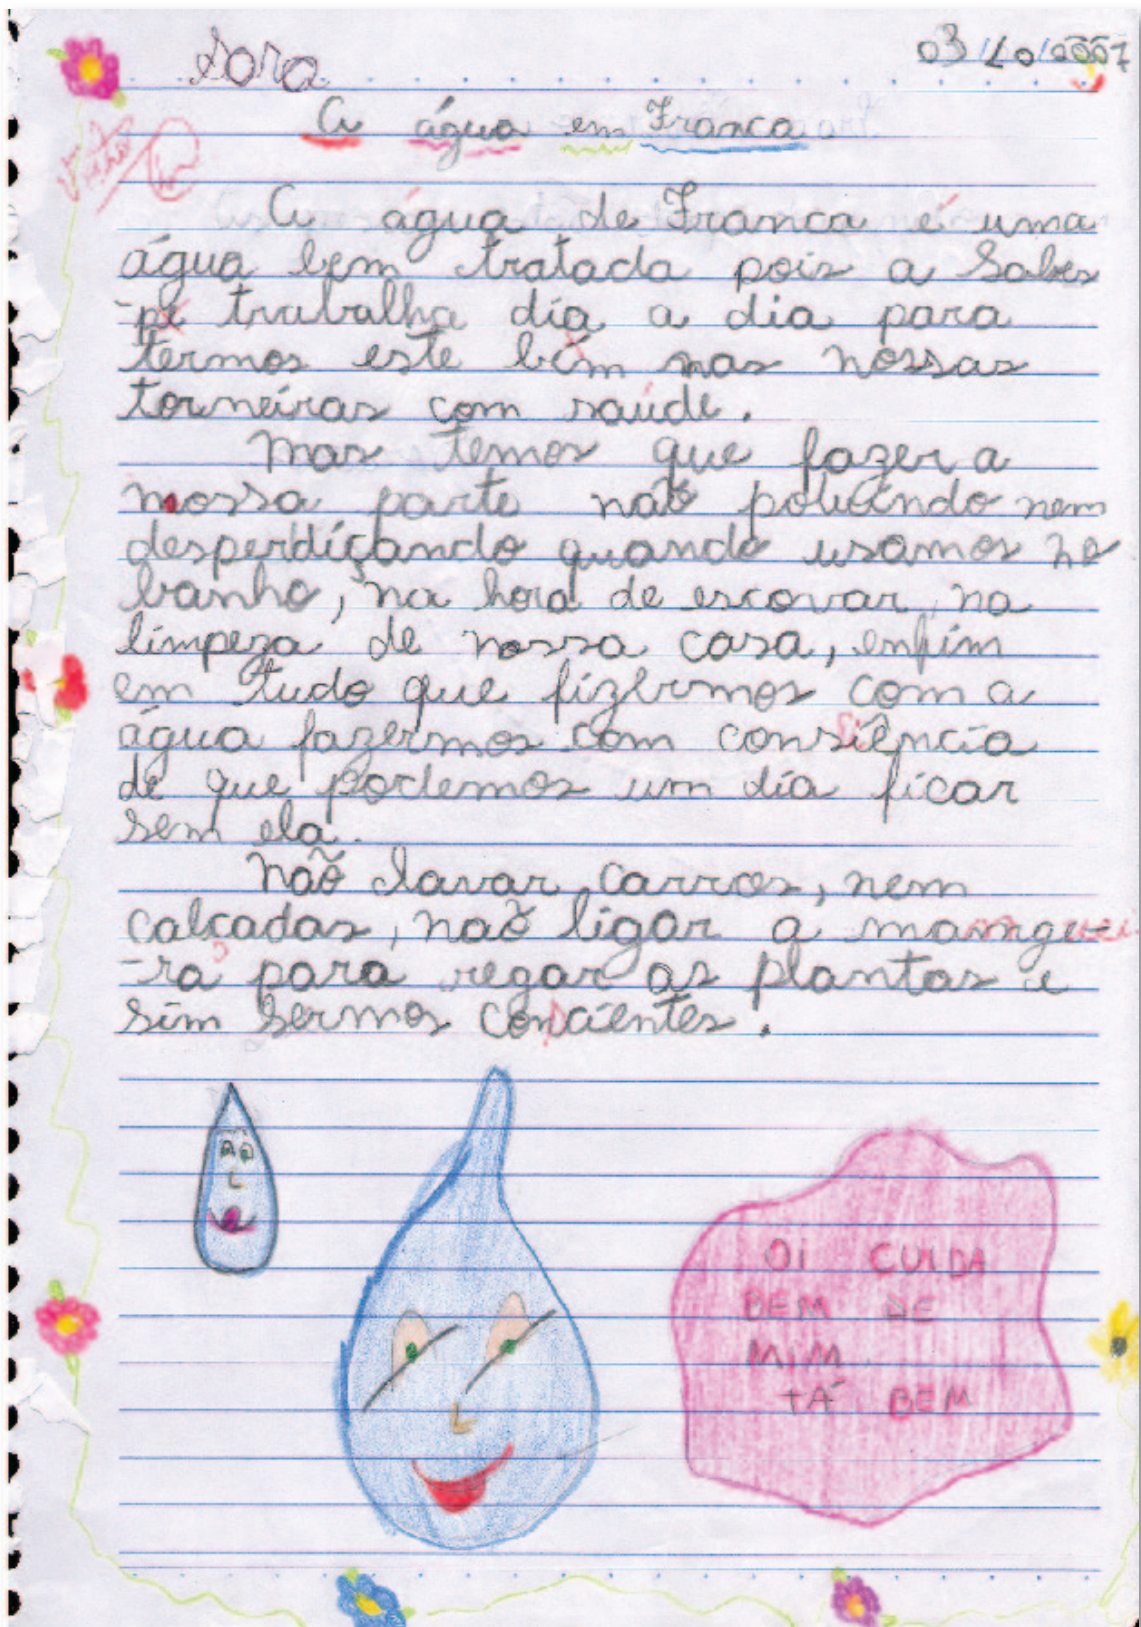 03/10/2007
A água em Franca
A água de Franca é uma
água bem tratada pois a Sabes
-pe trabalha dia a dia para
termos este bem nas nossas
torneiras com saúde.
Mas temos que fazer a
nossa parte não poluindo nem
desperdiçando quando usamos no
banho, na hora de escovar, na
limpeza de nossa casa, enfim
em tudo que fizermos com a
água fazermos com consiência
de que podemos um dia ficar
sem ela.
Não lavar carros, nem
calçadas, não ligar a manguei
-ra para regar as plantas e
sim sermos conscientes.
OI CUIDA
BEM DE
MIM
TÁ BEM